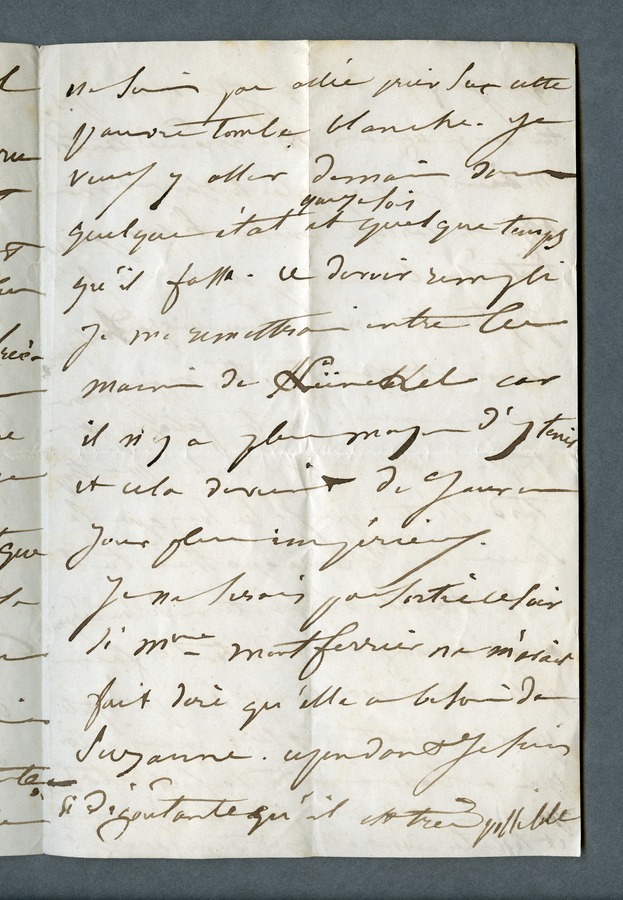 ne suis pas allée prier sur cette
pauvre tombe blanche. Je
veux y aller demain dans
quelque état que je sois et quelque temps
qu'il fasse. ce devoir rempli
je me remettrai entre les
mains de Künckel car
il n'y a plus moyen d'y tenir
et cela devient de jour en
jour plus impérieux.
Je ne serais pas sortie ce soir
si mme montferrier ne m'avait
fait dire qu'elle a besoin de
Suzanne. cependant je suis
si dégoûtante qu'il est très possible